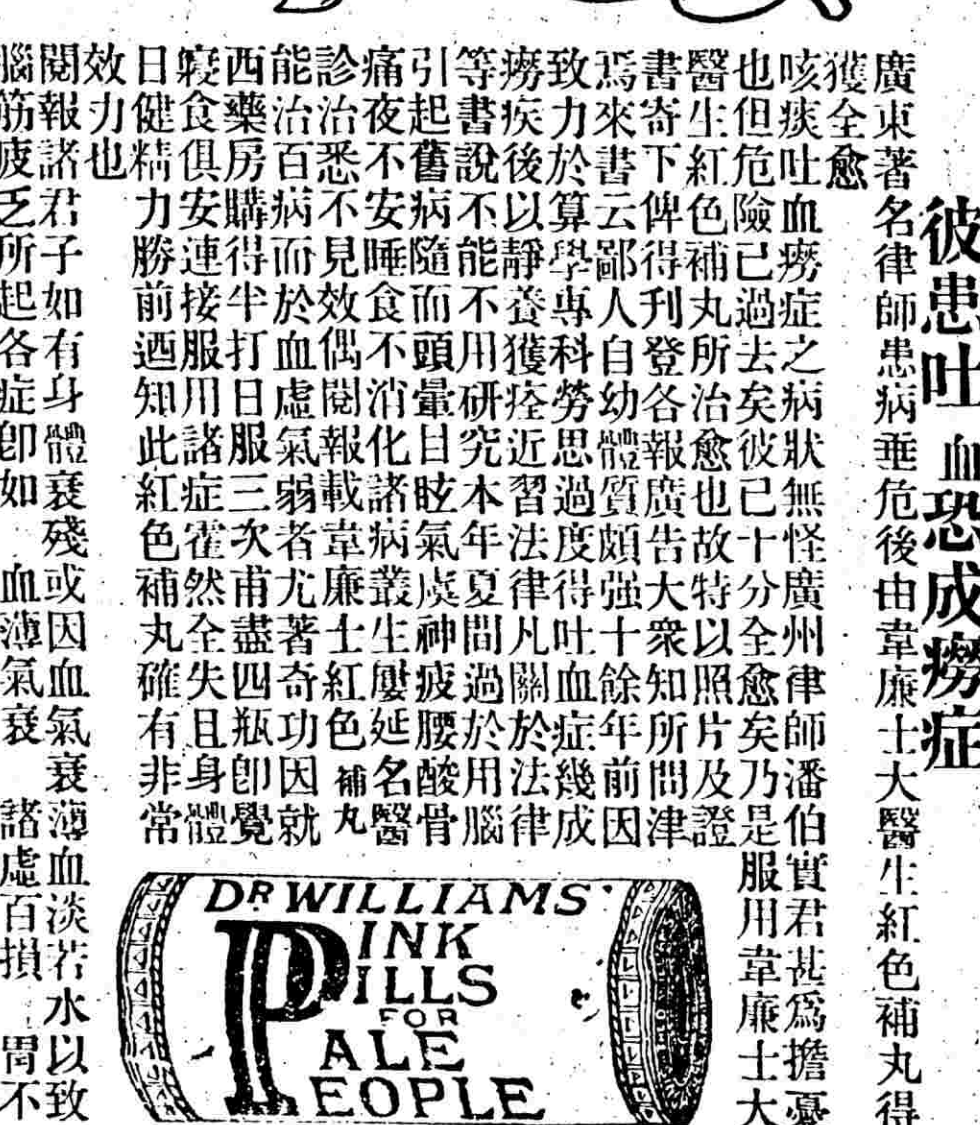 彼患吐血恐成癆症
廣東著名律師患病垂危後由韋廉士大醫生紅色補丸得
獲全愈
咳痰吐血癆症之病狀無怪廣州律師潘伯實君甚爲擔憂
也但危險已過去矣彼已十分全愈矣乃是服用韋廉士大
醫生紅色補丸所治愈也故特以照片及證
書寄下俾得刋登各報廣告大衆知所問津
焉來書云鄙人自幼體質頗强十餘年前因
致力於算學專科勞思過度得吐血症幾成
癆疾後以靜養獲痊近習法律凡關於法律
等書說不能不用研究本年夏間過於用腦
引起舊病隨而頭暈目眩氣虛神疲腰酸骨
痛夜不安睡食不消化諸病叢生屢延名醫
診治悉不見效偶閱報載韋廉士紅色補丸
能治百病而於血虛氣弱者尤著奇功因就
西藥房購得半打日服三次甫盡四瓶卽覺
寢食俱安連接服用諸症霍然全失且身體
日健精力勝前迺知此紅色補丸確有非常
效力也
閱報諸君子如有身體衰殘或因血氣衰薄血淡若水以致
腦筋疲乏所起各症卽如 血薄氣衰 諸虛百損 胃不
DR WILLIAMS'
PINK
PILLS
FOR
PALE
PEOPLE